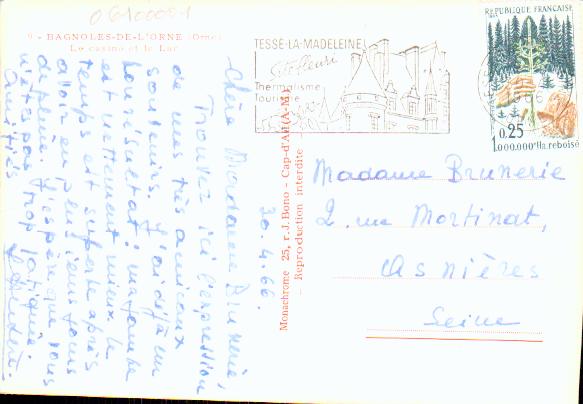 06100001
9 - BAGNOLES-DE-L'ORNE (Orne)
Le casino et le Lac
TESSÉ-LA-MADELEINE
Site fleuri
Thermalisme
Tourisme
REPUBLIQUE FRANÇAISE
1965
0,25
1.000.000e Ha. reboisé
Monachrome 25, r. J. Bono - Cap-d'Ail (A-M.)
Reproduction interdite
30.4.66
Chère Madame Brunerie,
Trouvez ici l'expression
de mes très amicaux
souvenirs. J'ai déjà un
bon résultat: ma jambe
est nettement mieux. le
temps est superbe après
avoir eu plusieurs jours
de pluie. J'espère que vous
n'êtes pas trop fatiguée.
Amitiés
Madame Brunerie
2, rue Mortinat,
Asnières
Seine